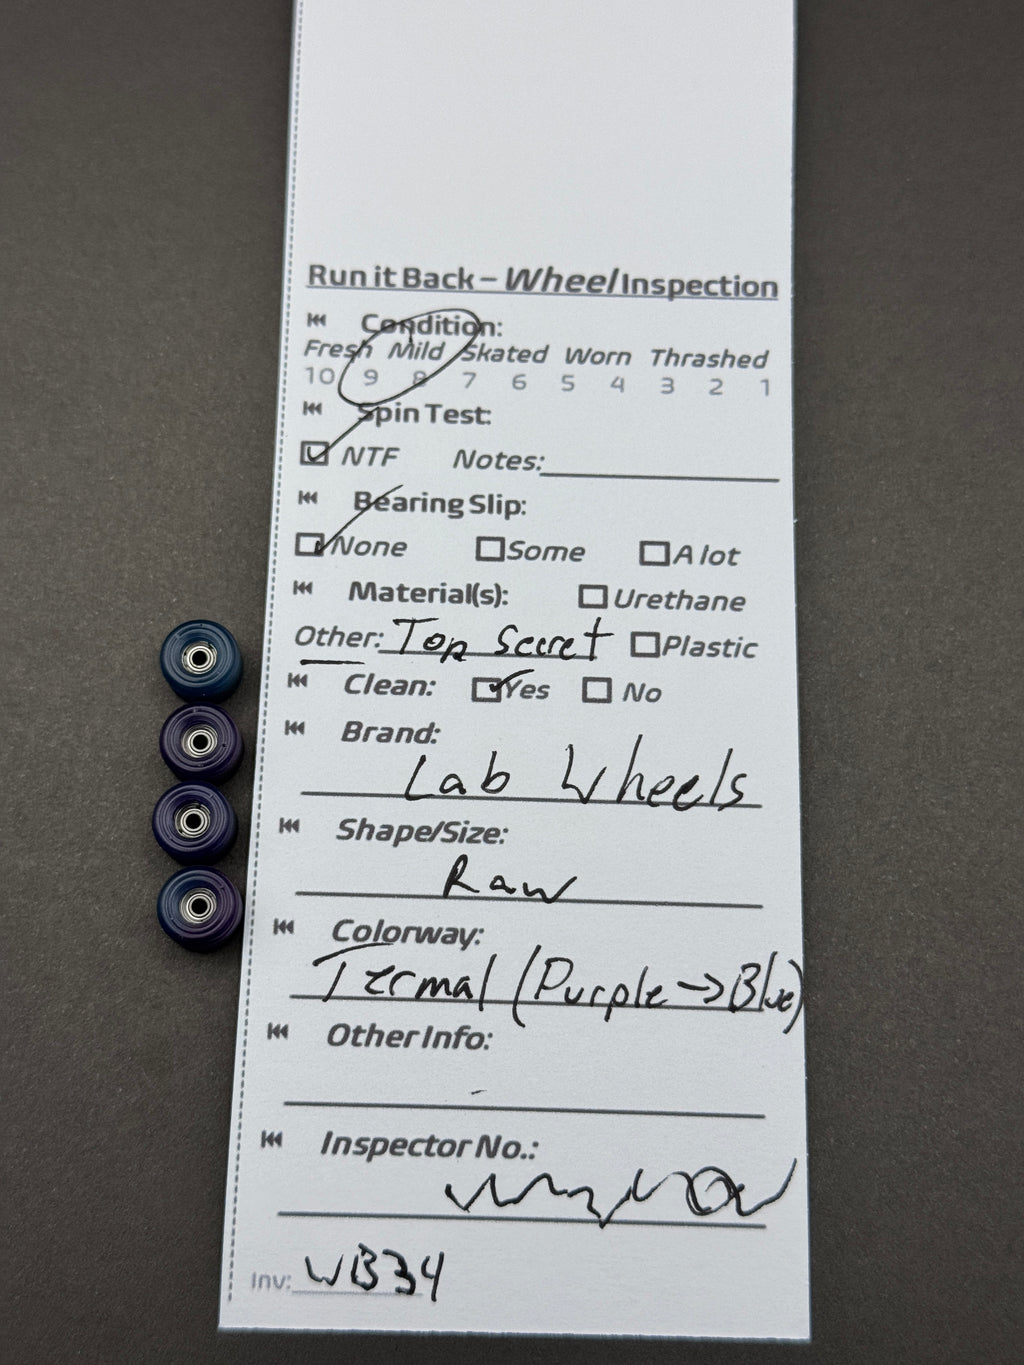 Run it Back – Wheel Inspection
Condition:
Fresh Mild Skated Worn Thrashed
10 9 8 7 6 5 4 3 2 1
Spin Test:
NTF Notes:
Bearing Slip:
None Some A lot
Material(s): Urethane
Other: Top Secret Plastic
Clean: Yes No
Brand:
Lab Wheels
Shape/Size:
Raw
Colorway:
Termal (Purple → Blue)
Other Info:
-
Inspector No.:
Inv: WB34